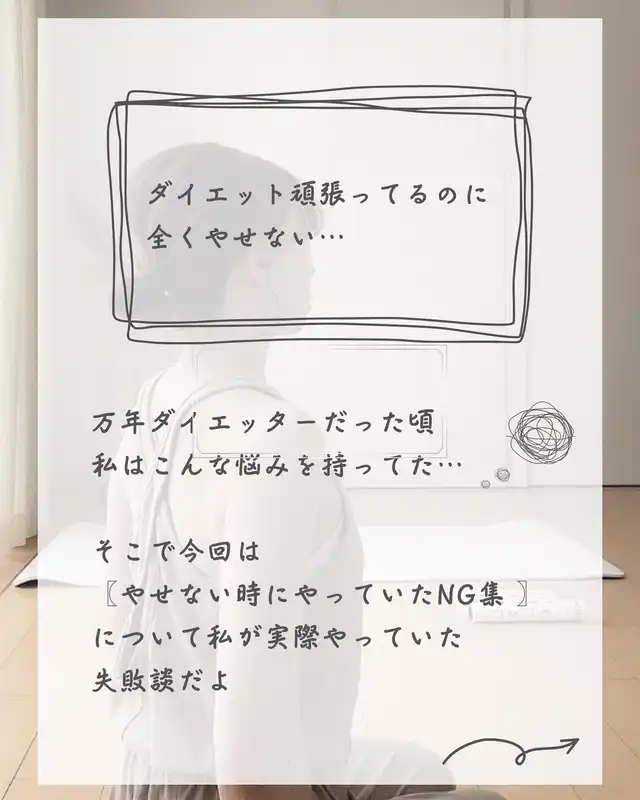 ダイエット頑張ってるのに
全くやせない…
万年ダイエッターだった頃
私はこんな悩みを持ってた…
そこで今回は
〖やせない時にやっていたNG集〗
について私が実際やっていた
失敗談だよ